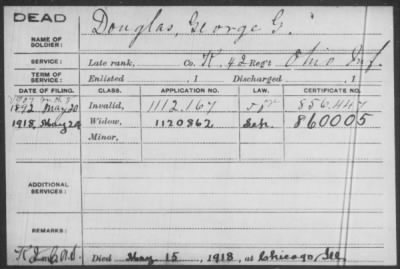 DEAD
NAME OF SOLDIER: Douglas, George G.
SERVICE: Late rank, Co. K. 42 Regt. Ohio Inf.
TERM OF SERVICE: Enlisted , 1 Discharged , 1
DATE OF FILING. CLASS. APPLICATION NO. LAW. CERTIFICATE NO.
1892, May 20 Invalid, 1112.167 856.447
1918, May 24 Widow, 1120862 Sep. 860005
Minor,
ADDITIONAL SERVICES:
REMARKS:
Died May 15, 1918, at Chicago, Ill